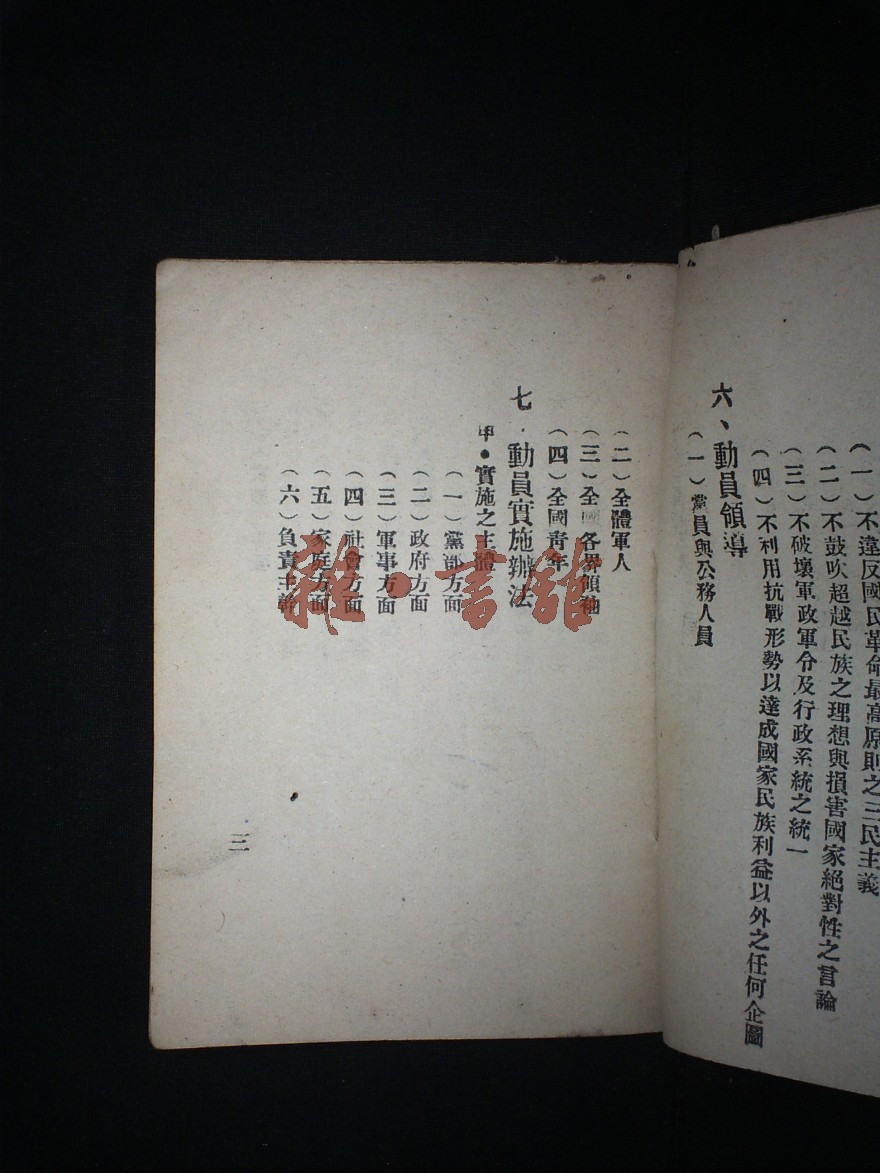 (一)不違反國民革命最高原則之三民主義
(二)不鼓吹超越民族之理想與損害國家絕對性之言論
(三)不破壞軍政軍令及行政系統之統一
(四)不利用抗戰形勢以達成國家民族利益以外之任何企圖
六、動員領導
(一)黨員與公務人員
(二)全體軍人
(三)全國各界領袖
(四)全國靑年
七.動員實施辦法
甲●實施之主體
(一)黨部方面
(二)政府方面
(三)軍事方面
(四)社會方面
(五)家庭方面
(六)負責主幹
三
雜·書館